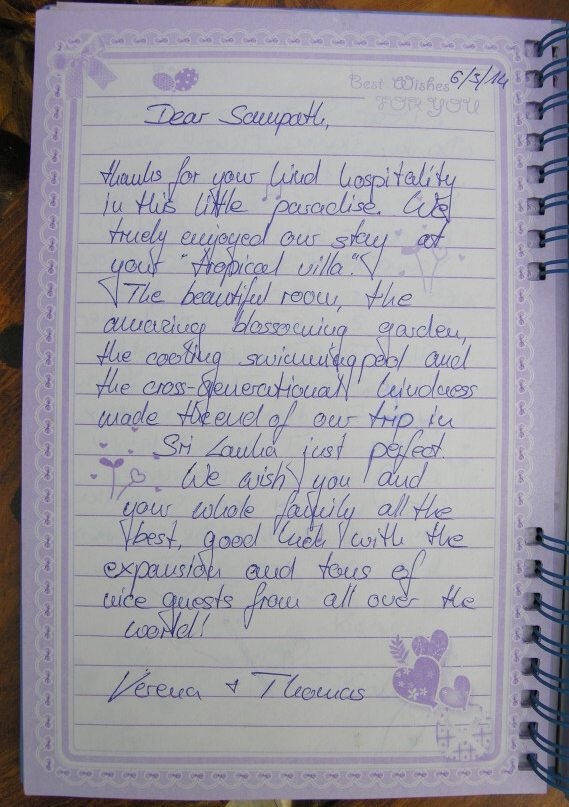 6/3/14
Best Wishes
FOR YOU
Dear Sampath,
thanks for your kind hospitality
in this little paradise. We
truely enjoyed our stay at
your "tropical villa".
The beautiful room, the
amazing blossoming garden,
the cooling swimmingpool and
the cross-generational kindness
made the end of our trip in
Sri Lanka just perfect
We wish you and
your whole family all the
best, good luck with the
expansion and tons of
nice guests from all over the
world!
Verena + Thomas